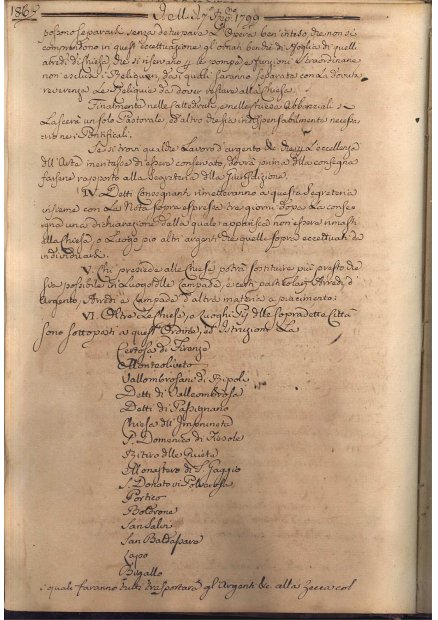 186
Adì 17 1799
possono separarsi senza deturpare L'Opera ben inteso che non si
comprendino in quest'eccettuazione gl'ornati benchè di Foglia di quelli
arredi di Chiesa che si riservano p le pompe, e funzioni straordinarie
non esclusi i Reliquiari da i quali saranno separate con La dovuta
reverenza Le Reliquie che dover restare alla Chiesa.
Finalmente nelle Cattedrali, e nelle Chiese Abbaziali si
Lascerà un solo Pastorale ed altro che sia indispensabilmente necessa
rio ne i Pontificali.
Se si trova qualche Lavoro d'argento &c che p L'eccellenza
dell'Arte meritasse di esser conservato, dovrà prima della consegna
farsene rapporto alla Segreteria della Giurisdizione.
IV. Detti Consegnanti rimetteranno a questa Segreteria
insieme con La Nota sopra espressa tre giorni dopo La conse
gna una dichiarazione dalla quale apparisca non essere rimasti
alla Chiesa, o Luogo pio altri argenti che quelli sopra eccettuati da
individuarsi.
V. Chi presiede alle Chiese potrà sostituire più presto che
sia possibile in Luogo delle Lampade, e certi particolari Arredi d'
Argento, Arredi e Lampade d'altra materia a piacimento.
VI. Oltre Le Chiese, o Luoghi Pij delle sopradette Città
sono sottoposti a quest'Ordine, ed Istruzione La
Certosa di Firenze
Monteoliveto
Vallombrosani di Ripoli
Detti di Vallombrosa
Detti di Passignano
Chiesa dell'Impruneta
S. Domenico di Fiesole
Ritiro delle Quiete
Monastero di S. Gaggio
S. Donato in Polverosa
Portico
Boldrone
San Salvi
San Baldassarre
Lapo
Bigallo
i quali faranno tutti trasportare gl'Argenti &c. alla Zecca col